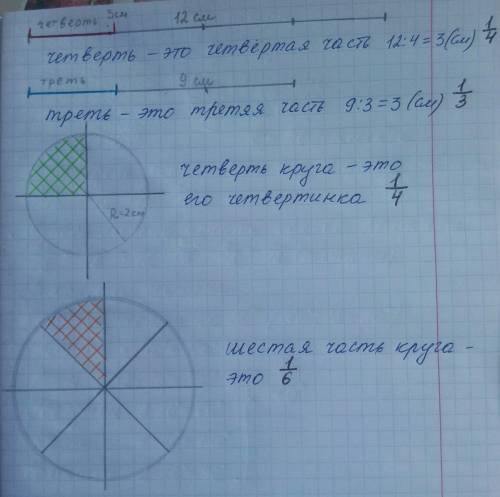 четверть 3см 12 см
четверть – это четвёртая часть 12:4=3(см) 1/4
треть 9 см
треть – это третяя часть 9:3=3(см) 1/3
четверть круга – это
его четвертинка 1/4
R=2см
шестая часть круга –
это 1/6